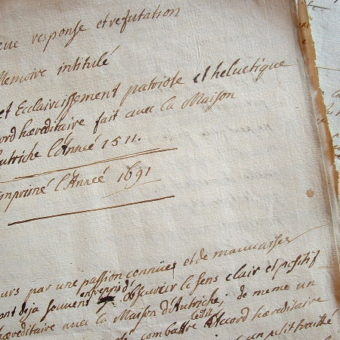 response et refutation
Memoire intitulé
et Eclaircissement patriote et helvetique
hereditaire fait avec la Maison
l'Année 1511.
imprimé l'Année 1691
par une passion connüe, et de mauvaises
deja souvent entrepris d'obscurcir le sens clair et positif
hereditaire avec la Maison d'Autriche, de meme un
combattre ledit accord hereditaire
un petit